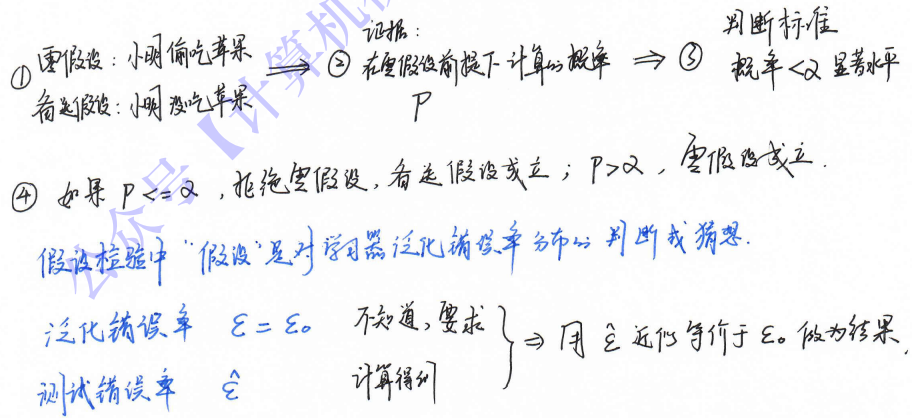 ① 零假设：小明偷吃苹果
备选假设：小明没吃苹果
⇒ ② 证据：
在零假设前提下计算的概率
P
⇒ ③ 判断标准
概率<α 显著水平
④ 如果 P<=α，拒绝零假设，备选假设成立；P>α，零假设成立．
假设检验中“假设”是对学习器泛化错误率分布的判断或猜想．
泛化错误率 ε=ε₀ 不知道，要求
测试错误率 ε̂ 计算得到
} ⇒ 用 ε̂ 近似等价于 ε₀ 做为结果，
公众号【计算机